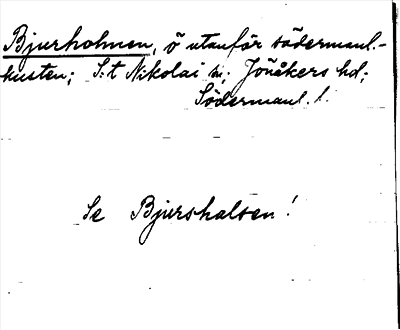 Bjurholmen, ö utanför södermanl.-
kusten; S:t Nikolai sn; Jönåkers hd;
Södermanl. l.
Se Bjurshalsen!